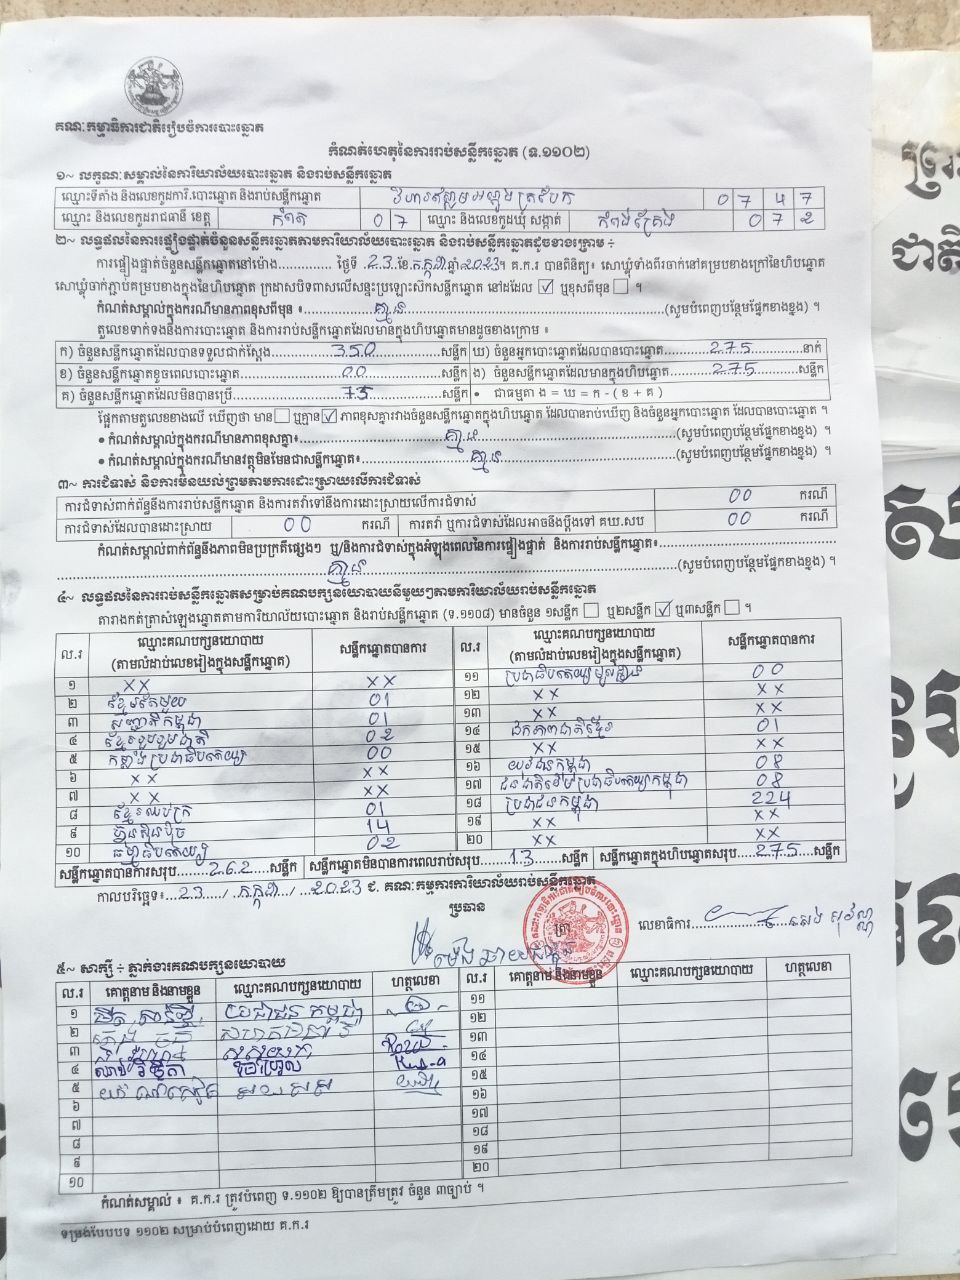 គណៈកម្មាធិការជាតិរៀបចំការបោះឆ្នោត
កំណត់ហេតុនៃការរាប់សន្លឹកឆ្នោត (ទ.១១០២)
១~ លក្ខណៈសម្គាល់នៃការិយាល័យបោះឆ្នោត និងរាប់សន្លឹកឆ្នោត
ឈ្មោះទីតាំង និងលេខកូដការិ.បោះឆ្នោត និងរាប់សន្លឹកឆ្នោត 0 7 4 7
ឈ្មោះ និងលេខកូដរាជធានី ខេត្ត កំពត 0 7 ឈ្មោះ និងលេខកូដឃុំ សង្កាត់ កំពង់ក្រែង 0 7 2
២~ លទ្ធផលនៃការផ្ទៀងផ្ទាត់ចំនួនសន្លឹកឆ្នោតតាមការិយាល័យបោះឆ្នោត និងរាប់សន្លឹកឆ្នោតដូចខាងក្រោម ÷
ការផ្ទៀងផ្ទាត់ចំនួនសន្លឹកឆ្នោតនៅម៉ោង............. ថ្ងៃទី 23 ខែ កក្កដា ឆ្នាំ 2023។ គ.ក.រ បានពិនិត្យ៖ សោឃ្លុំទាំងពីរចាក់នៅគម្របខាងក្រៅនៃហិបឆ្នោត
សោឃ្លុំចាក់ភ្ជាប់គម្របខាងក្នុងនៃហិបឆ្នោត ក្រដាសបិទពាសលើសន្ទះប្រឡោះសិកសន្លឹកឆ្នោត នៅដដែល ☑ ឬខុសពីមុន ☐ ។
កំណត់សម្គាល់ក្នុងករណីមានភាពខុសពីមុន ៖ គ្មាន (សូមបំពេញបន្ថែមផ្នែកខាងខ្នង) ។
តួលេខទាក់ទងនឹងការបោះឆ្នោត និងការរាប់សន្លឹកឆ្នោតដែលមានក្នុងហិបឆ្នោតមានដូចខាងក្រោម ៖
ក) ចំនួនសន្លឹកឆ្នោតដែលបានទទួលជាក់ស្តែង 350 សន្លឹក ឃ) ចំនួនអ្នកបោះឆ្នោតដែលបានបោះឆ្នោត 275 នាក់
ខ) ចំនួនសន្លឹកឆ្នោតខូចពេលបោះឆ្នោត 00 សន្លឹក ង) ចំនួនសន្លឹកឆ្នោតដែលមានក្នុងហិបឆ្នោត 275 សន្លឹក
គ) ចំនួនសន្លឹកឆ្នោតដែលមិនបានប្រើ 75 សន្លឹក • ជាធម្មតា ង = ឃ = ក - ( ខ + គ )
ផ្អែកតាមតួលេខខាងលើ ឃើញថា មាន ☐ ឬគ្មាន ☑ ភាពខុសគ្នារវាងចំនួនសន្លឹកឆ្នោតក្នុងហិបឆ្នោត ដែលបានរាប់ឃើញ និងចំនួនអ្នកបោះឆ្នោត ដែលបានបោះឆ្នោត ។
• កំណត់សម្គាល់ក្នុងករណីមានភាពខុសគ្នា៖ គ្មាន (សូមបំពេញបន្ថែមផ្នែកខាងខ្នង) ។
• កំណត់សម្គាល់ក្នុងករណីមានវត្ថុមិនមែនជាសន្លឹកឆ្នោត៖ គ្មាន (សូមបំពេញបន្ថែមផ្នែកខាងខ្នង) ។
៣~ ការជំទាស់ និងការមិនយល់ព្រមតាមការដោះស្រាយលើការជំទាស់
ការជំទាស់ពាក់ព័ន្ធនឹងការរាប់សន្លឹកឆ្នោត និងការតវ៉ាទៅនឹងការដោះស្រាយលើការជំទាស់ 00 ករណី
ការជំទាស់ដែលបានដោះស្រាយ 00 ករណី ការតវ៉ា ឬការជំទាស់ដែលអាចនឹងប្តឹងទៅ គឃ.សប 00 ករណី
កំណត់សម្គាល់ពាក់ព័ន្ធនឹងភាពមិនប្រក្រតីផ្សេងៗ ឬ/និងការជំទាស់ក្នុងអំឡុងពេលនៃការផ្ទៀងផ្ទាត់ និងការរាប់សន្លឹកឆ្នោត៖
គ្មាន (សូមបំពេញបន្ថែមផ្នែកខាងខ្នង) ។
៤~ លទ្ធផលនៃការរាប់សន្លឹកឆ្នោតសម្រាប់គណបក្សនយោបាយនីមួយៗតាមការិយាល័យរាប់សន្លឹកឆ្នោត
តារាងកត់ត្រាសំឡេងឆ្នោតតាមការិយាល័យបោះឆ្នោត និងរាប់សន្លឹកឆ្នោត (ទ.១១០៨) មានចំនួន ១សន្លឹក ☐ ឬ២សន្លឹក ☑ ឬ៣សន្លឹក ☐ ។
ល.រ ឈ្មោះគណបក្សនយោបាយ (តាមលំដាប់លេខរៀងក្នុងសន្លឹកឆ្នោត) សន្លឹកឆ្នោតបានការ ល.រ ឈ្មោះគណបក្សនយោបាយ (តាមលំដាប់លេខរៀងក្នុងសន្លឹកឆ្នោត) សន្លឹកឆ្នោតបានការ
១ XX XX ១១ ប្រជាធិបតេយ្យមូលដ្ឋាន 00
២ ខ្មែរតែមួយ 01 ១២ XX XX
៣ សញ្ជាតិកម្ពុជា 01 ១៣ XX XX
៤ ខ្មែររួបរួមជាតិ 02 ១៤ ឯកភាពជាតិខ្មែរ 01
៥ កម្លាំងប្រជាធិបតេយ្យ 00 ១៥ XX XX
៦ XX XX ១៦ យុវជនកម្ពុជា 08
៧ XX XX ១៧ ជនជាតិដើមប្រជាធិបតេយ្យកម្ពុជា 08
៨ ខ្មែរឈប់ក្រ 01 ១៨ ប្រជាជនកម្ពុជា 224
៩ ហ្វ៊ុនស៊ិនប៉ិច 14 ១៩ XX XX
១០ ធម្មាធិបតេយ្យ 02 ២០ XX XX
សន្លឹកឆ្នោតបានការសរុប 262 សន្លឹក សន្លឹកឆ្នោតមិនបានការពេលរាប់សរុប 13 សន្លឹក សន្លឹកឆ្នោតក្នុងហិបឆ្នោតសរុប 275 សន្លឹក
កាលបរិច្ឆេទ៖ 23 / កក្កដា / 2023 ជ. គណៈកម្មការការិយាល័យរាប់សន្លឹកឆ្នោត
ប្រធាន ត្រា លេខាធិការ
៥~ សាក្សី ÷ ភ្នាក់ងារគណបក្សនយោបាយ
ល.រ គោត្តនាម និងនាមខ្លួន ឈ្មោះគណបក្សនយោបាយ ហត្ថលេខា ល.រ គោត្តនាម និងនាមខ្លួន ឈ្មោះគណបក្សនយោបាយ ហត្ថលេខា
១ ១១
២ ១២
៣ ១៣
៤ ១៤
៥ ១៥
៦ ១៦
៧ ១៧
៨ ១៨
៩ ១៩
១០ ២០
កំណត់សម្គាល់ ៖ គ.ក.រ ត្រូវបំពេញ ទ.១១០២ ឱ្យបានត្រឹមត្រូវ ចំនួន ៣ច្បាប់ ។
ទម្រង់បែបបទ ១១០២ សម្រាប់បំពេញដោយ គ.ក.រ